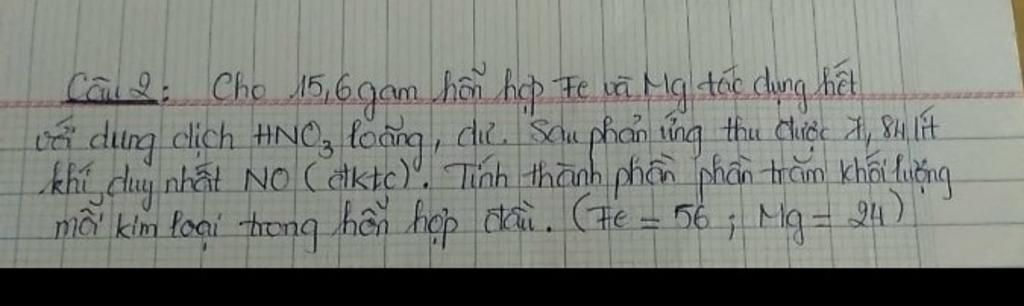 Câu 2: Cho 15,6 gam hỗn hợp Fe và Mg tác dụng hết
với dung dịch HNO3 loãng, dư. Sau phản ứng thu được 7,84 lít
khí duy nhất NO (đktc). Tính thành phần phần trăm khối lượng
mỗi kim loại trong hỗn hợp đầu. (Fe = 56 ; Mg = 24)